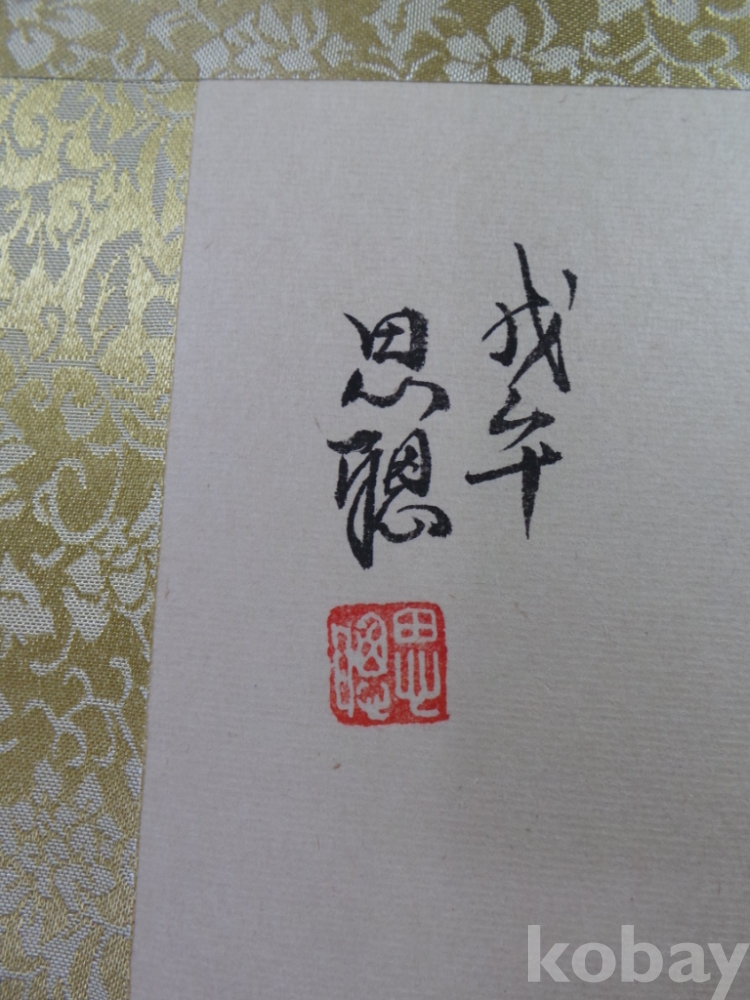 戊午
思聰
思聰
kobay